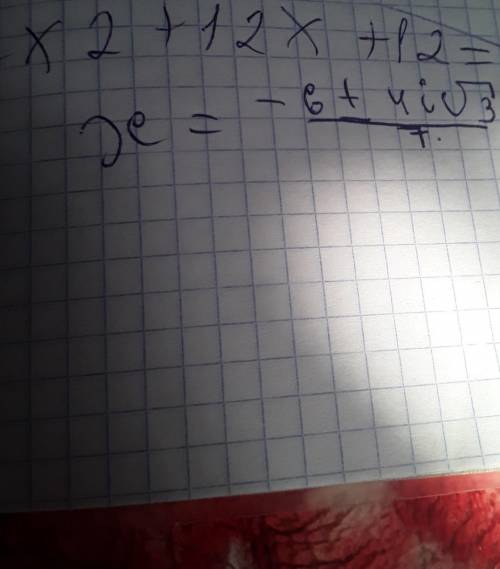 x2 + 12x + 12 =
x = -6 + 4i√3
7.